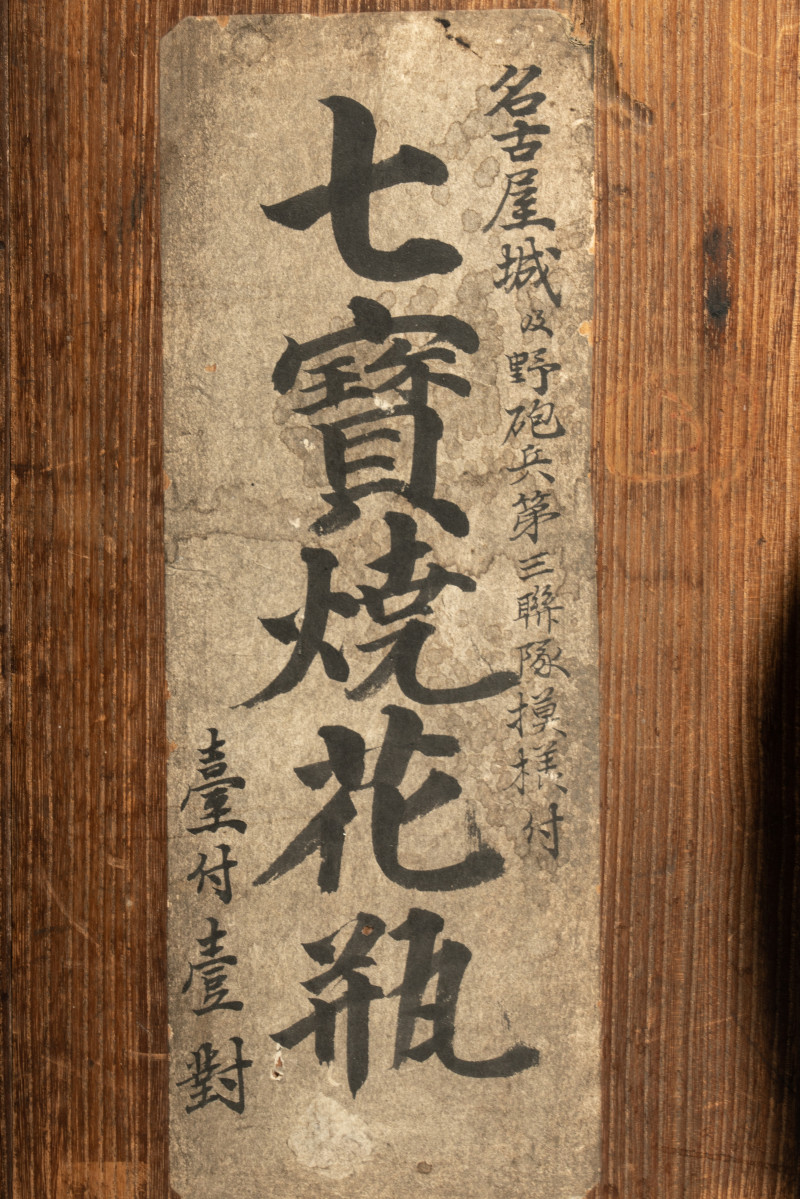 名古屋城及野砲兵第三聯隊模様付
七寳焼花瓶
臺付壹對